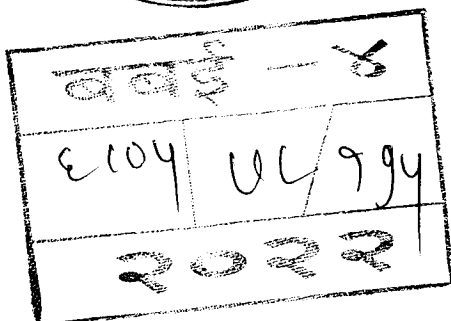 बबई - ४
६८०५ ७८/११५
२०२२